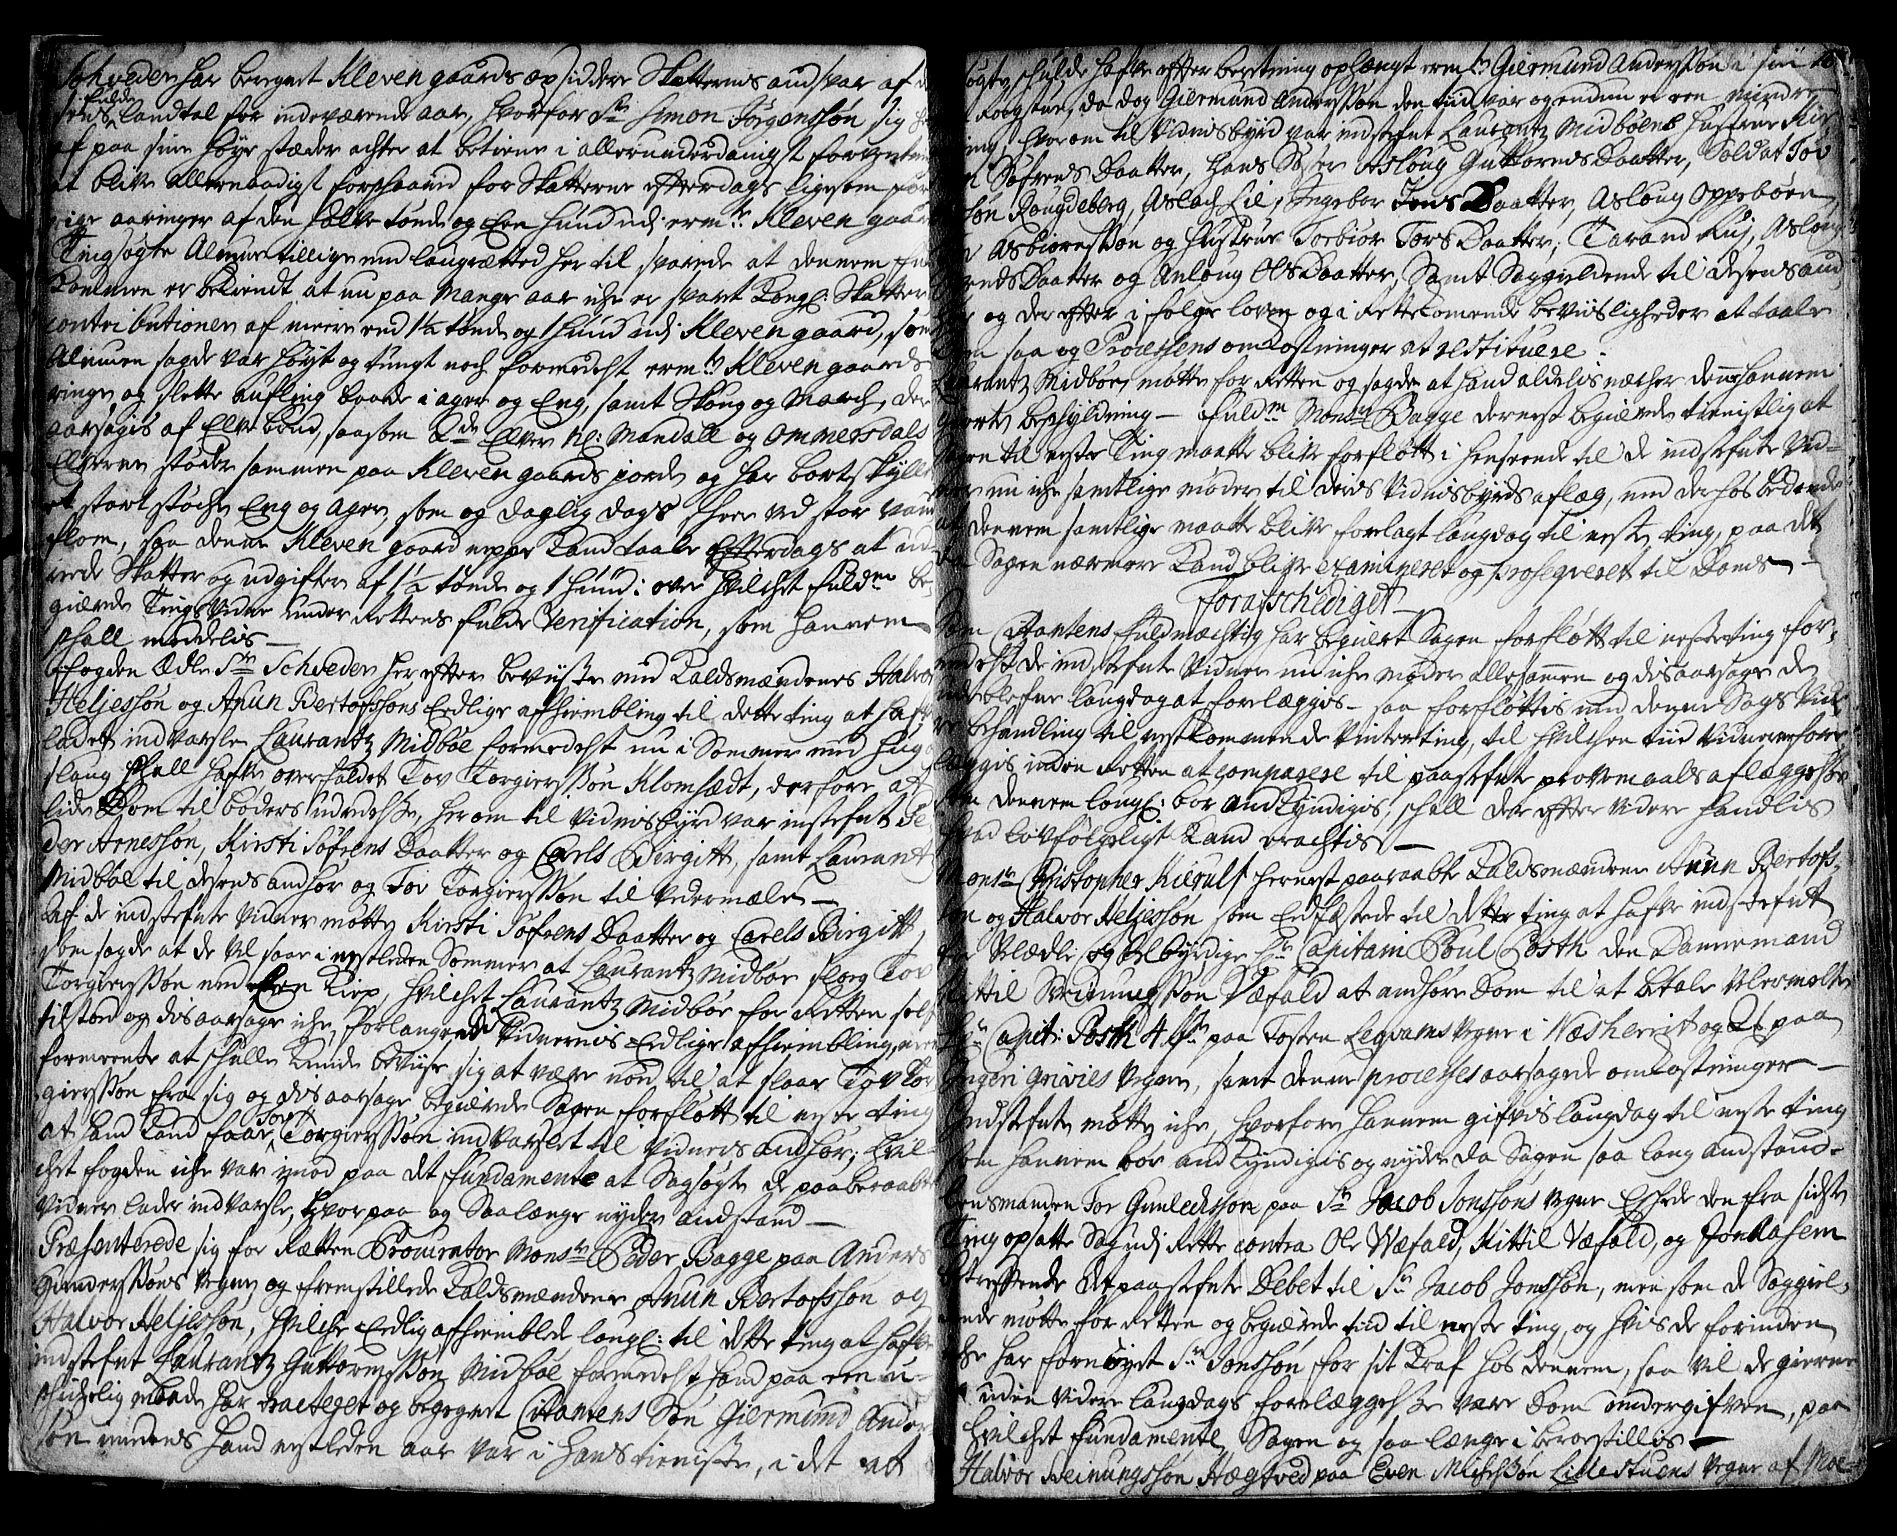 Schweder har beregnet Kleven gaards opsiddere Skatternes andsvar af
fulde
landtal for indeværende aar, hvorfor Sr Simon Jørgenssøn sig
af paa sine høye stæder achter at betiene i allerunderdanigst forventning
at blive allernaadigst forschaanid for Skatterne efterdags ligesom for
rige aaringer af den halve tønde og Een hund udj ermte Kleven gaard
Tingsøgte Almue tillige med laugrætted her til svarede at dennem fuld
kommen er bekiendt at nu paa mange aar iche er svaret Kongl: Skatter
contributioner af meire end 1½ tønde og 1 hund udj Kleven gaard, som
Almuen sagde var høyt og tungt noch formedelst ermte Kleven gaards
ringe og slette aufling baade i ager og Eng, samt Skoug og March, der
aarsagis af Elve brud, saasom 2de Elver Nl: Mandall og Ommersdals
Elverne støder sammen paa Kleven gaards jorder og har bort skyllet
et stort støche Eng og ager, som og daglig dags scheer ved stor vand
flom, saa denne Kleven gaard neppe kand taale efterdags at ud-
rede Skatter og udgifter af 1½ tønde og 1 hund: over hvilchet fuldm be-
giærede Tingsvidne under Rettens fulde Verification, som hannem
schall meddelis —
Fogden Ædle Sr Schweder her efter beviiste med Kaldsmændenes Halvor
Heljessøn og Anun Bertofssøns Eedlige afhiembling til dette ting at hafve
ladet indvarsle Laurantz Midbøe formedelst nu i Sommer med hug og
slaug schall hafve overfaldet Tov Torgierssøn Klomsædt, derfore at
lide Dom til bøders udredelse, herom til vidnisbyrd var instefnt Pe
der Arnessøn, Kirsti Søfrens Daatter og Carels Birgitt, samt Laurantz
Midbøe til desens anhør og Tov Torgierssøn til vedermæle —
Af de indstefnte vidner møtte Kirsti Søfrens Daatter og Carels Birgitt,
som sagde at de vel saae i nestleden Sommer at Laurantz Midbøe slog Tov
Torgierssøn med een Kiep, hvilchet Laurantz Midbøe for Retten self
tilstod og disaarsage iche forlangede vidnernis Eedlige afhiembling, men
formeente at schulle kunde beviise sig at være nød til at slaae Tov Tor
gierssøn fra sig og disaarsage begiærede Sagen forfløtt til neste ting
Tov
at hand kand faae Torgierssøn indvarslet til vidners anhør; hvil-
chet fogden iche var imod paa det fundamente at Sagsøgte de paaberaabte
vidner lader indvarsle, hvorpaa og Saalænge nyder andstand —
Præsenterede sig for Rætten Procurator Monsr Peder Bagge paa Anders
Gunderssøns vegne og fremstillede Kaldsmændene Anun Bertofssøn og
Halvor Heljessøn, hvilche Eedlig afhiemblede laugl: til dette ting at hafve
indstefnt Laurantz Guttormssøn Midbøe formedelst hand paa een u-
schichelig maade har tracteret og begegnet Citantens Søn Giermund Anders
søn imedens hand nestleden aar var i hans tieniste, i det at
schulde hafve efter beretning ophængt ermte Giermund Anderssøn i sin
Roegstue, da dog Giermund Anderssøn den tiid var og endnu er een mindre
aarig, hvorom til vidnisbyrd var indstefnt Laurantz Midbøens hustrue Kir
Søfrens Daatter, hans Søster Aslaug Guttorms Daatter, Soldat Tov
søn Rougdeberg, Aslach Lie, Ingebor Jens Daatter, Aslaug Oppebøen,
Asbiørnssøn og hustrue Torbior Tors Daatter, Tarand Rui, Aslaug
Daatter og Anlaug Ols Daatter, samt Saggieldende til desens and
hør og derefter i følge loven og i Rettekomende beviisligheder at taale
Dom saa og Processens omkostninger at restituere.
Laurantz Midbøe møtte for Retten og sagde at hand aldelis næcter denne hannem
giorte beschyldning — Fuldm Monsr Bagge dernest begiærede tienistlig at
Sagen til neste Ting maatte blive forfløtt i henseende til de indstefnte vid-
ner nu iche samtlige møder til deris vidnisbyrds aflæg, med der hos bedende
at dennem samtlige maatte blive forelagt laugdag til neste ting, paa det
Sagen nærmere kand blive examineret og proseqveret til Doms —
Forafschediget
Som Citantens fuldmæchtig har begiært Sagen forfløtt til neste ting for-
medelst de indstefnte vidner nu iche møder allesammen og disaarsage de
udeblefne laugdag at forelæggis — saa forfløttis med denne Sags vid-
re behandling til nestkommende vinterting, til hvilchen tiid vidnerne fore
læggis inden Retten at comparere til paastefnte provemaals aflæggelse
som dennem laugl: bør andkyndigis, schall der efter videre handlis
hvad lovfølgeligt kand erachtis —
Monsr Christopher Kierulf hernest paaraabte Kaldsmændene Anun Bertofs-
søn og Halvor Heljessøn som Eedfæstede til dette ting at hafve indstefnt
for Velædle og velbyrdige Hr Capitain Poul Posth den Dannemand
Kittil Svenungssøn Væfald at andhøre Dom til at betale velermelte
Hr Capit: Posth 4 rdr paa Tosten Legvams vegne i Næsherrit og 2 rdr paa
Grivies vegne, samt denne processes aarsagede omkostninger —
Indstefnte møtte iche, hvorfore hannem gifvis laugdag til neste ting
som hannem bør andkyndigis og nyder da Sagen saa lang andstand —
Lensmanden Tor Gunlechssøn paa Sr Jacob Jonssøns vegne Eschede den fra sidste
Ting opsatte Sag udj Rette contra Ole Wæfald, Kittil Væfald, og Jon Aasem
betreffende det paastefnte Debet til Sr Jacob Jonssøn, men som de Saggiel-
dende møtte for Retten og begiærede tiid til neste ting, og hvis de forinden
iche har fornøyet Sr Jonssøn for sit Kraf hos dennem, saa vil de gierne
uden videre laugdags forelæggelse være Dom undergifven, paa
hvilchet fundamente Sagen og saa længe i beroe stillis —
Halvor Reinungssøn Hægtved paa Even Michelssøn Lillestuens vegne af Moe-